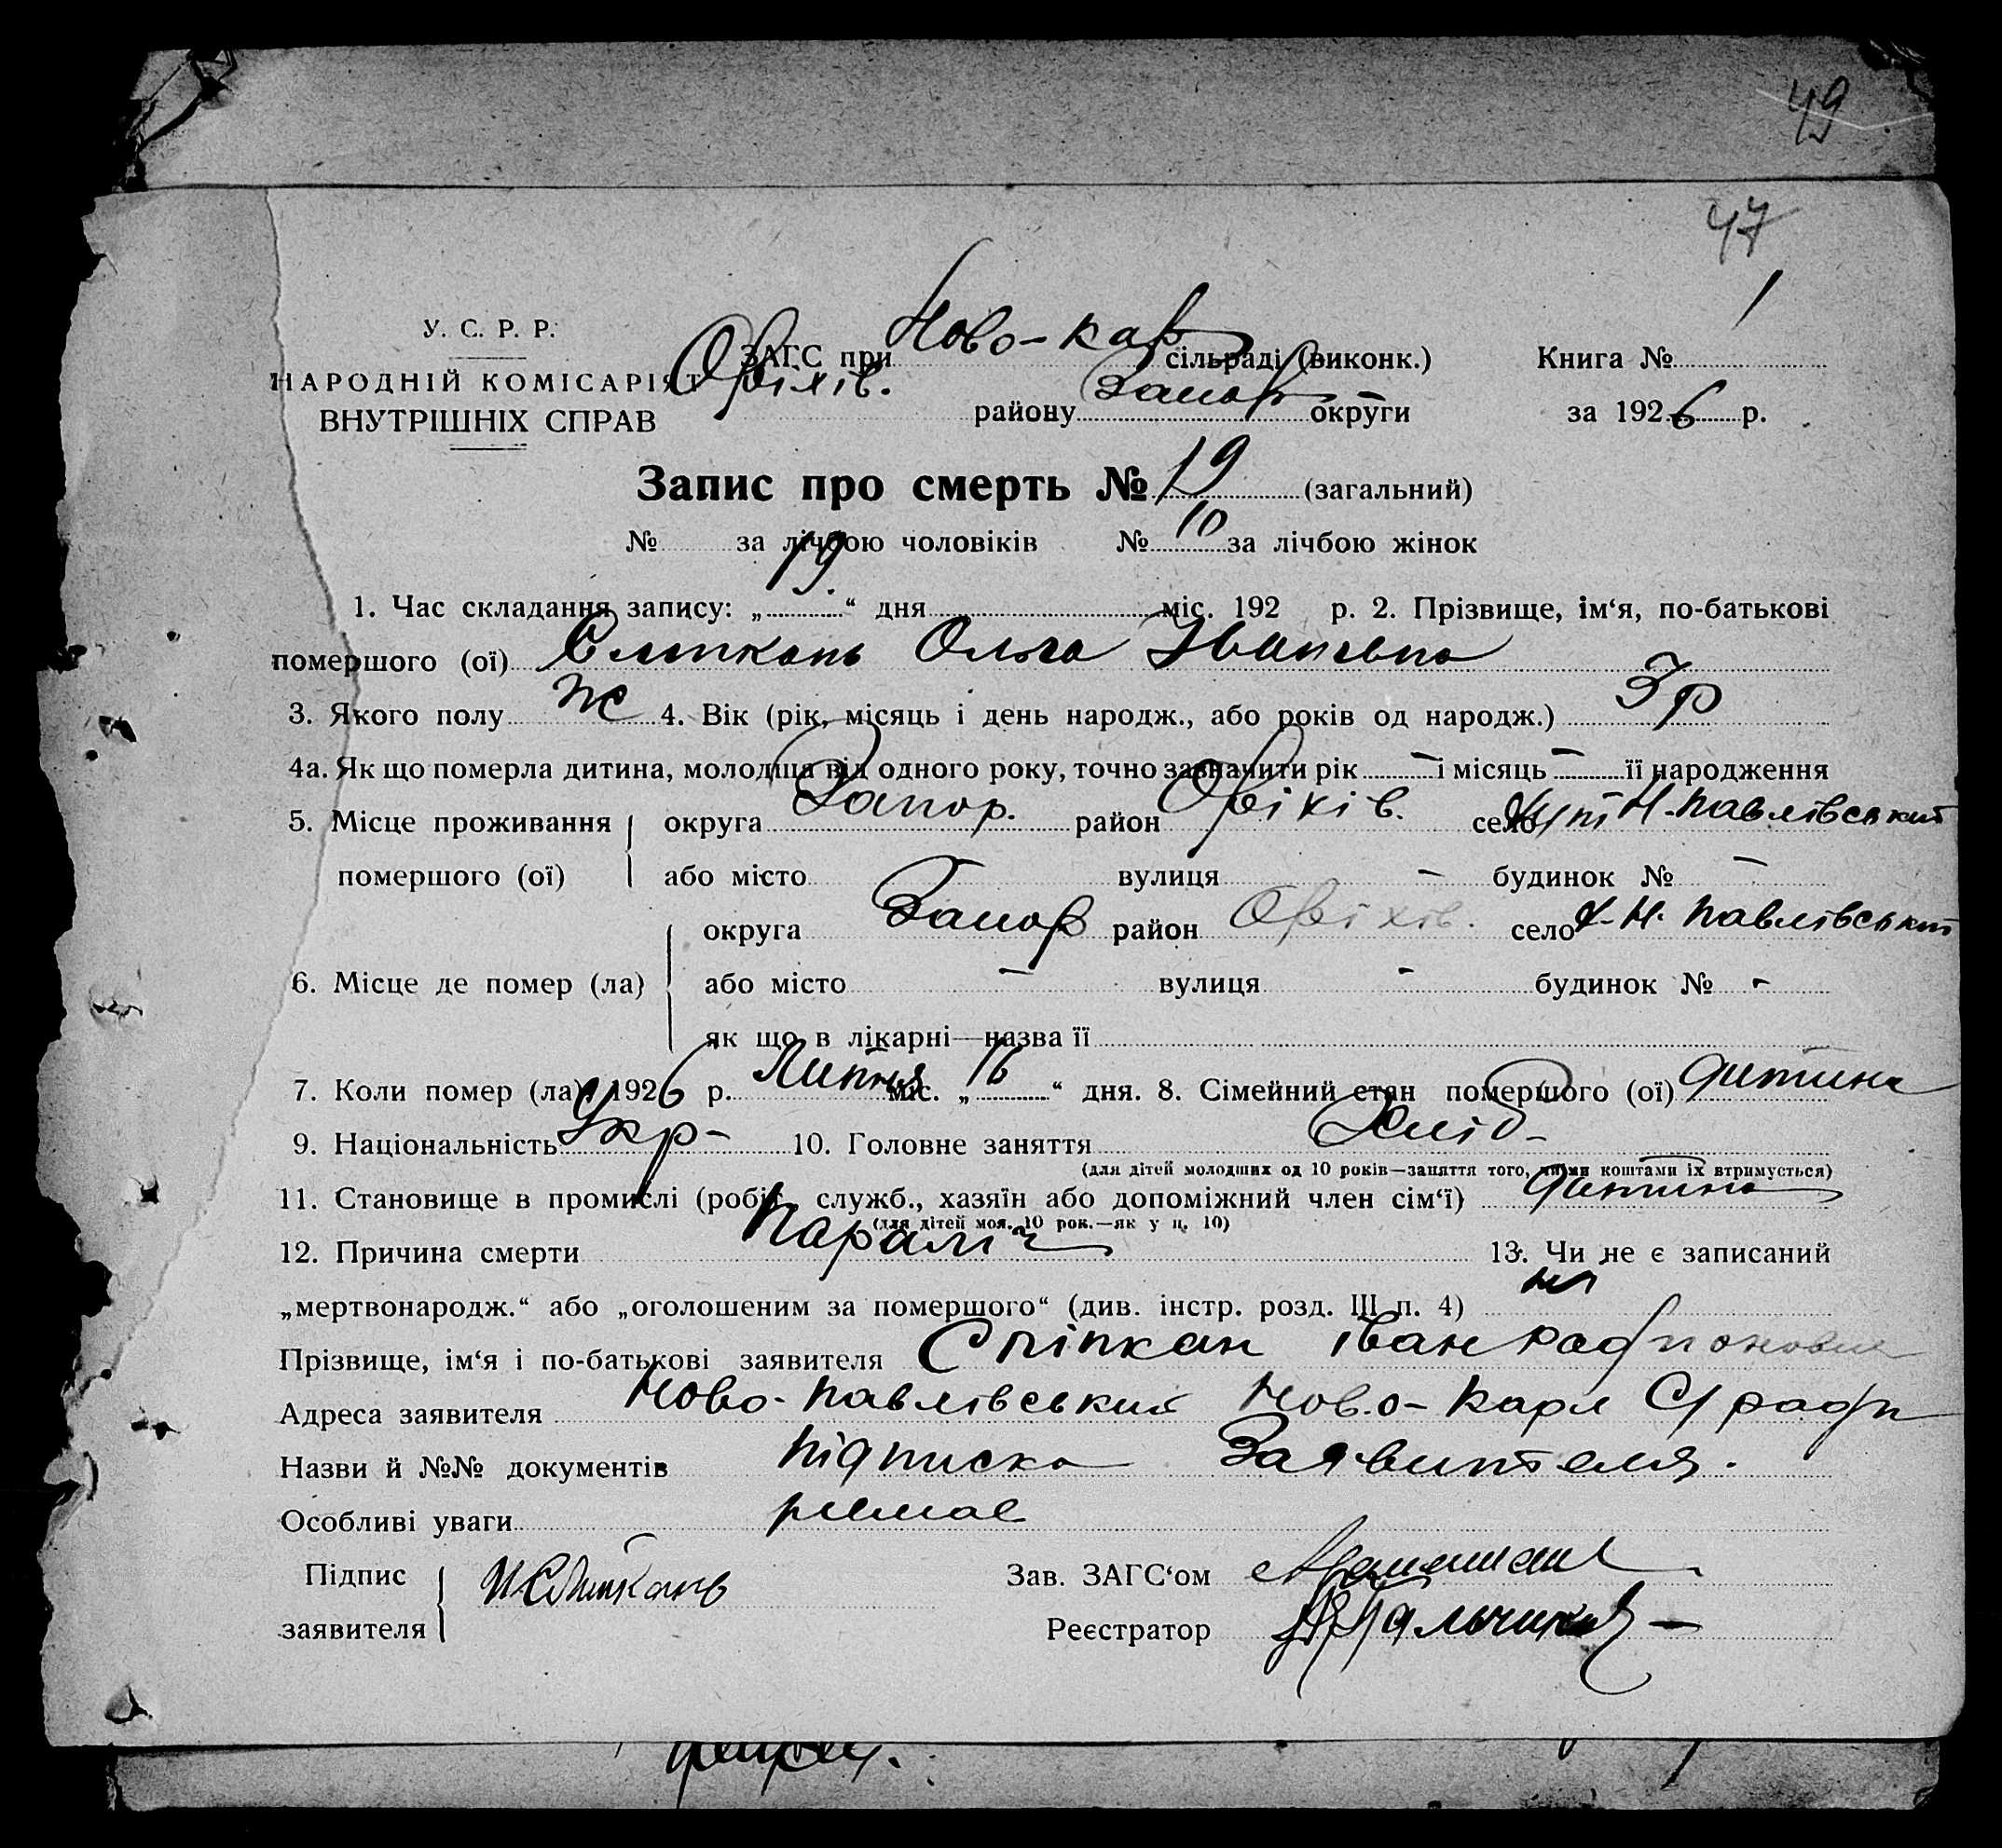 49
47
У. С. Р. Р.
НАРОДНІЙ КОМІСАРІЯТ
ВНУТРІШНІХ СПРАВ
ЗАГС при Ново-кар сільраді (виконк.) Книга № 1
Оріхів. району Запор округи за 1926 р.
Запис про смерть № 19 (загальний)
№ за лічбою чоловіків № 10 за лічбою жінок
1. Час складання запису: „19.“ дня міс. 192 р. 2. Прізвище, ім‘я, по-батькові
помершого (ої) Ольга Івановна
3. Якого полу Ж 4. Вік (рік, місяць і день народж., або років од народж.) 3 р
4а. Як що померла дитина, молодша від одного року, точно зазначити рік – і місяць – її народження
5. Місце проживання округа Запор. район Оріхів. село Н-Павлівський
помершого (ої) або місто вулиця – будинок № –
округа Запор район Оріхів. село Х-Н. Павлівський
6. Місце де помер (ла) або місто – вулиця - будинок № -
як що в лікарні—назва її
7. Коли помер (ла) 1926 р. Липня міс. „16“ дня. 8. Сімейний стан помершого (ої) дитина
9. Національність Укр- 10. Головне заняття Хліб-
(для дітей молодших од 10 років—заняття того, чиїми коштами їх втримується)
11. Становище в промислі (робіт., служб., хазяїн або допоміжний член сім‘ї) дитина
(для дітей мол. 10 рок.—як у п. 10)
12. Причина смерти Параліч 13. Чи не є записаний
„мертвонародж.“ або „оголошеним за помершого“ (див. інстр. розд. III п. 4) ні
Прізвище, ім‘я і по-батькові заявителя Сліпкан Іван
Адреса заявителя Ново-Павлівський Ново-Карл С/ради
Назви й №№ документів підписка Заявителя.
Особливі уваги немає
Підпис Зав. ЗАГС‘ом
заявителя Реєстратор